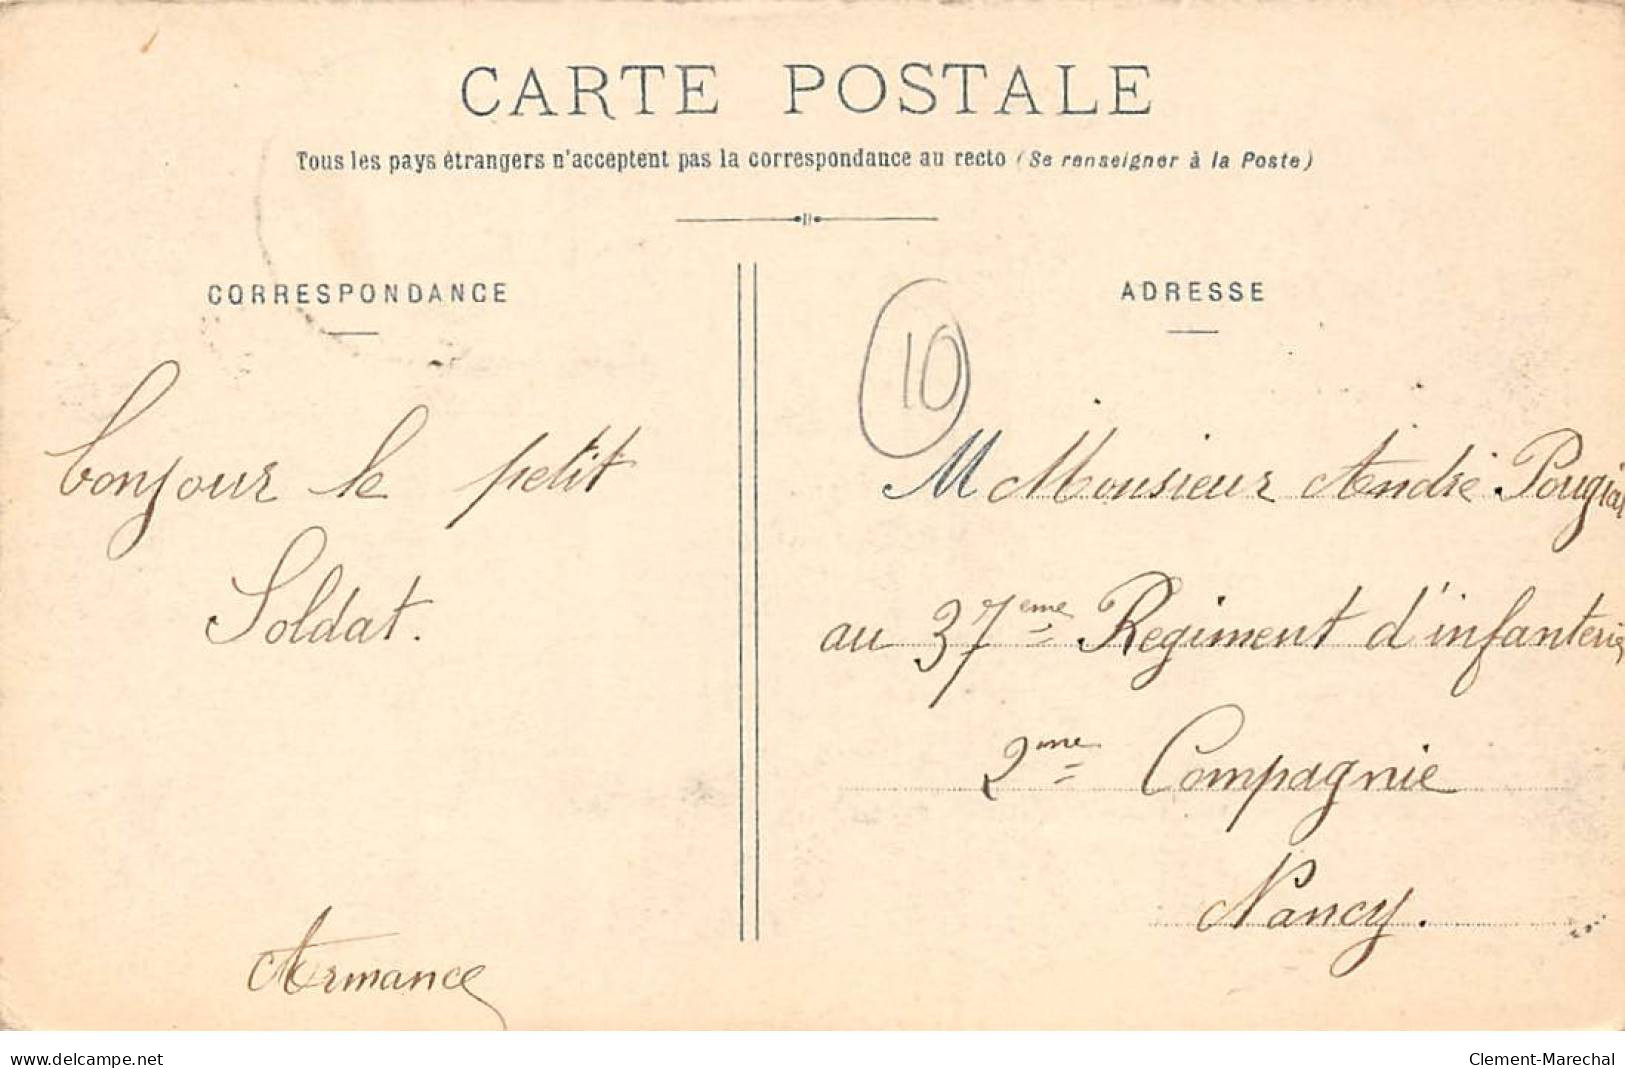 CARTE POSTALE
Tous les pays étrangers n'acceptent pas la correspondance au recto (Se renseigner à la Poste)
CORRESPONDANCE
ADRESSE
10
bonjour le petit
Soldat.
Armance
M Monsieur André
au 37eme Regiment d'infanterie
2me Compagnie
Nancy.
www.delcampe.net
Clement-Marechal